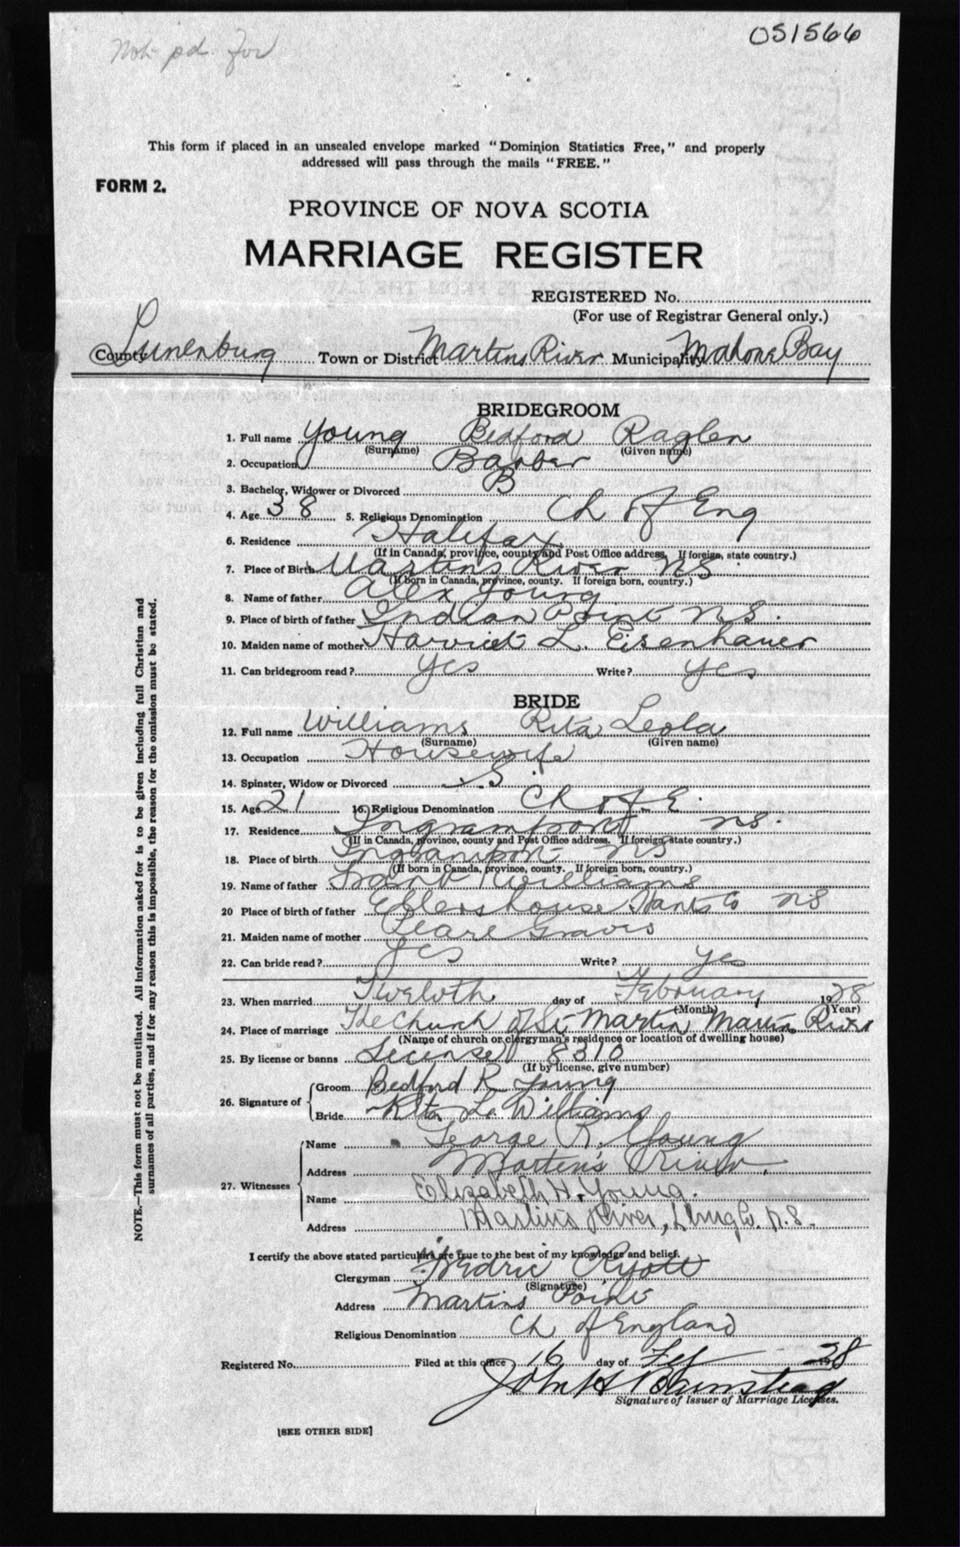 Not pd. for
051566
This form if placed in an unsealed envelope marked "Dominion Statistics Free," and properly
addressed will pass through the mails "FREE."
FORM 2.
PROVINCE OF NOVA SCOTIA
MARRIAGE REGISTER
REGISTERED No.
(For use of Registrar General only.)
County Lunenburg Town or District Martins River Municipality Mahone Bay
BRIDEGROOM
1. Full name Young Bedford Raglen
(Surname) (Given name)
2. Occupation Barber
3. Bachelor, Widower or Divorced B
4. Age 38 5. Religious Denomination Ch of Eng
6. Residence Halifax
(If in Canada, province, county and Post Office address. If foreign, state country.)
7. Place of Birth Martins River NS
(If born in Canada, province, county. If foreign born, country.)
8. Name of father Alex Young
9. Place of birth of father Indian Point NS.
10. Maiden name of mother Harriet L. Eisenhauer
11. Can bridegroom read? yes Write? yes
BRIDE
12. Full name Williams Rita Leola
(Surname) (Given name)
13. Occupation Housewife
14. Spinster, Widow or Divorced S.
15. Age 21 16. Religious Denomination Ch of E.
17. Residence Ingramport NS.
(If in Canada, province, county and Post Office address. If foreign, state country.)
18. Place of birth Ingramport NS
(If born in Canada, province, county. If foreign born, country.)
19. Name of father Frank Williams
20 Place of birth of father Ellershouse Hants Co NS
21. Maiden name of mother
22. Can bride read? yes Write? yes
23. When married Twelvth day of February 1928
(Month) (Year)
24. Place of marriage The Church of St Martin Martins River
(Name of church or clergyman's residence or location of dwelling house)
25. By license or banns License 8310
(If by license, give number)
26. Signature of
Groom Bedford R Young
Bride Rita L. Williams
27. Witnesses
Name George R. Young
Address Martin's River.
Name Elizabeth H. Young.
Address Martin's River, Lung Co. N.S.
I certify the above stated particulars are true to the best of my knowledge and belief.
Clergyman Ryott
(Signature)
Address Martins Point
Religious Denomination Ch of England
Registered No. Filed at this office 16 day of Feb 1928
John H
Signature of Issuer of Marriage Licenses.
[SEE OTHER SIDE]
NOTE.—This form must not be mutilated. All information asked for is to be given including full Christian and
surnames of all parties, and if for any reason this is impossible, the reason for the omission must be stated.